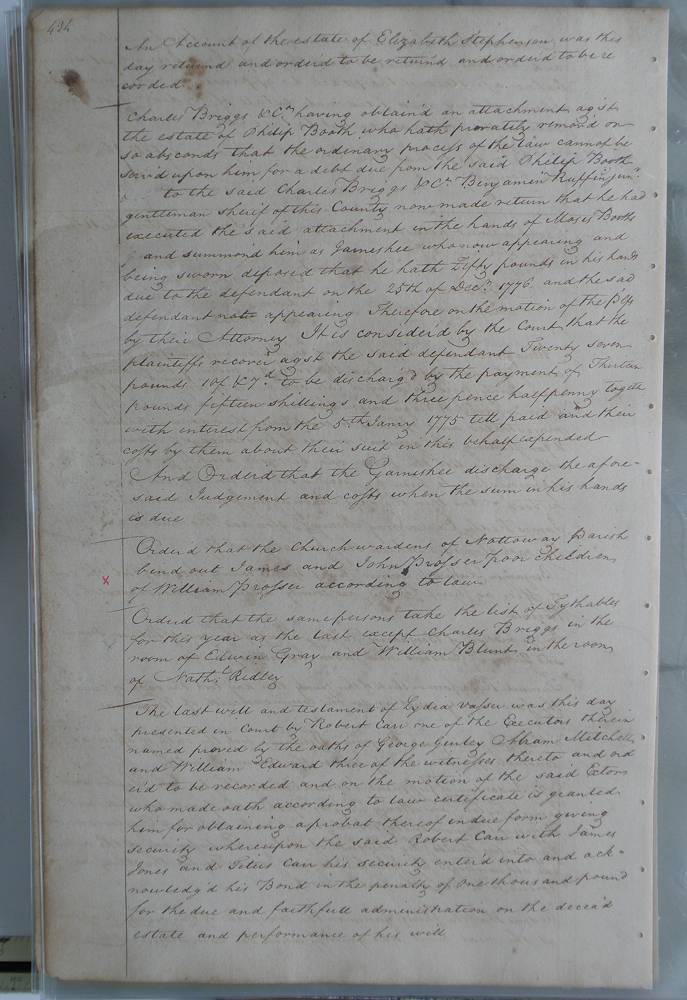 494
An Account of the estate of Elizabeth Stephenson was this
day returnd and orderd to be returnd and orderd to be re
corded
Charles Briggs & Co having obtain'd an attachment agst
the estate of Philip Booth who hath privately remov'd or
so absconds that the ordinary process of the law cannot be
serv'd upon him for a debt due from the said Philip Booth
to the said Charles Briggs & Co Benjamin Ruffin junr
gentleman sherif of this County now made return that he had
executed the said attachment in the hands of Moses Booth
and summon'd him as Garnishee who now appearing and
being sworn deposed that he hath Fifty pounds in his hands
due to the defendant on the 25th of Decr 1776 and the sad
defendant not appearing Therefore on the motion of the plfs
by their Attorney It is consider'd by the Court that the
plaintiffs recover agst the said defendant Twenty seven
pounds 10/ & 7d to be discharg'd by the payment of Thirteen
pounds fifteen shillings and three pence halfpenny togeth
with interest from the 5th Janry 1775 till paid and their
costs by them about their suit in this behalf expended
And Orderd that the Garnishee discharge the afore-
said Judgement and costs when the sum in his hands
is due
Orderd that the Churchwardens of Nottoway Parish
bind out James and John Prosser Poor Children
x of William Prosser according to law
Orderd that the same persons take the list of Tythables
for this year as the last except Charles Briggs in the
room of Edwin Gray and William Blunt in the room
of Nathl Ridley
The last will and testament of Lydia Vasser was this day
presented in Court by Robert Carr one of the Executors therein
named proved by the oaths of George Gurley Abram Mitchell
and William Edward three of the witnesses thereto and ord
er'd to be recorded and on the motion of the said Extors
who made oath according to law certificate is granted
him for obtaining a probat thereof in due form giving
security whereupon the said Robert Carr with James
Jones and Titus Carr his security enter'd into and ack-
nowledg'd his Bond in the penalty of One thousand pound
for the due and faithfull administration on the deced
estate and performance of his will